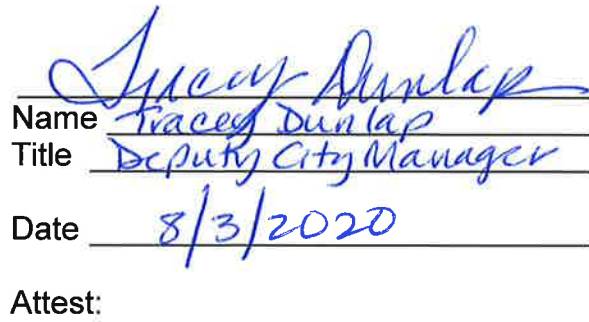 Tracey Dunlap
Name Tracey Dunlap
Title Deputy City Manager
Date 8/3/2020
Attest: